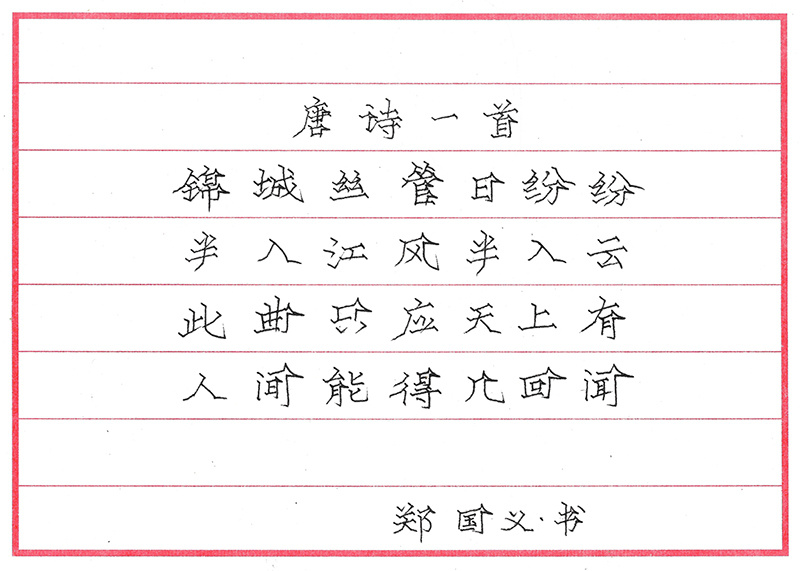 唐诗一首
锦城丝管日纷纷
半入江风半入云
此曲只应天上有
人间能得几回闻
郑国义·书